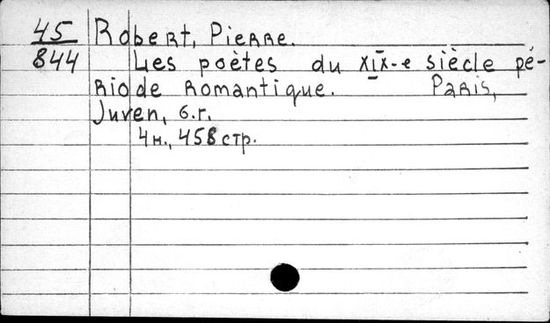 45 Robert, Pierre.
844 Les poètes du XIX-e siècle pé-
riode romantique. Paris,
Juven, б.г.
4н., 458 стр.